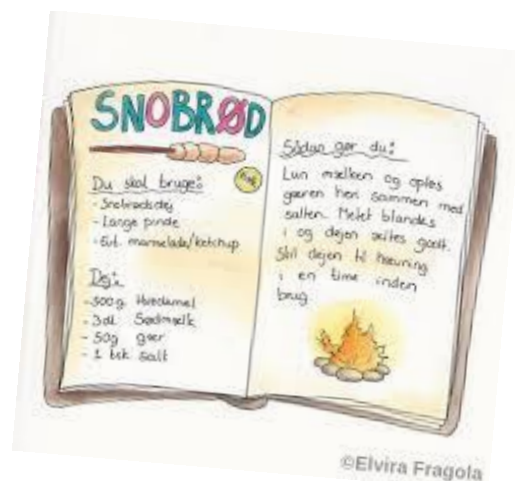 SNOBRØD
Du skal bruge:
- Snobrødsdej
- Lange pinde
- Evt. marmelade/ketchup
Dej:
- 500g Hvedemel
- 3dl Sødmælk
- 50g gær
- 1 tsk salt
Sådan gør du:
Lun mælken og opløs
gæren heri sammen med
salten. Melet blandes
i og dejen æltes godt.
Stil dejen til hævning
i en time inden
brug
©Elvira Fragola